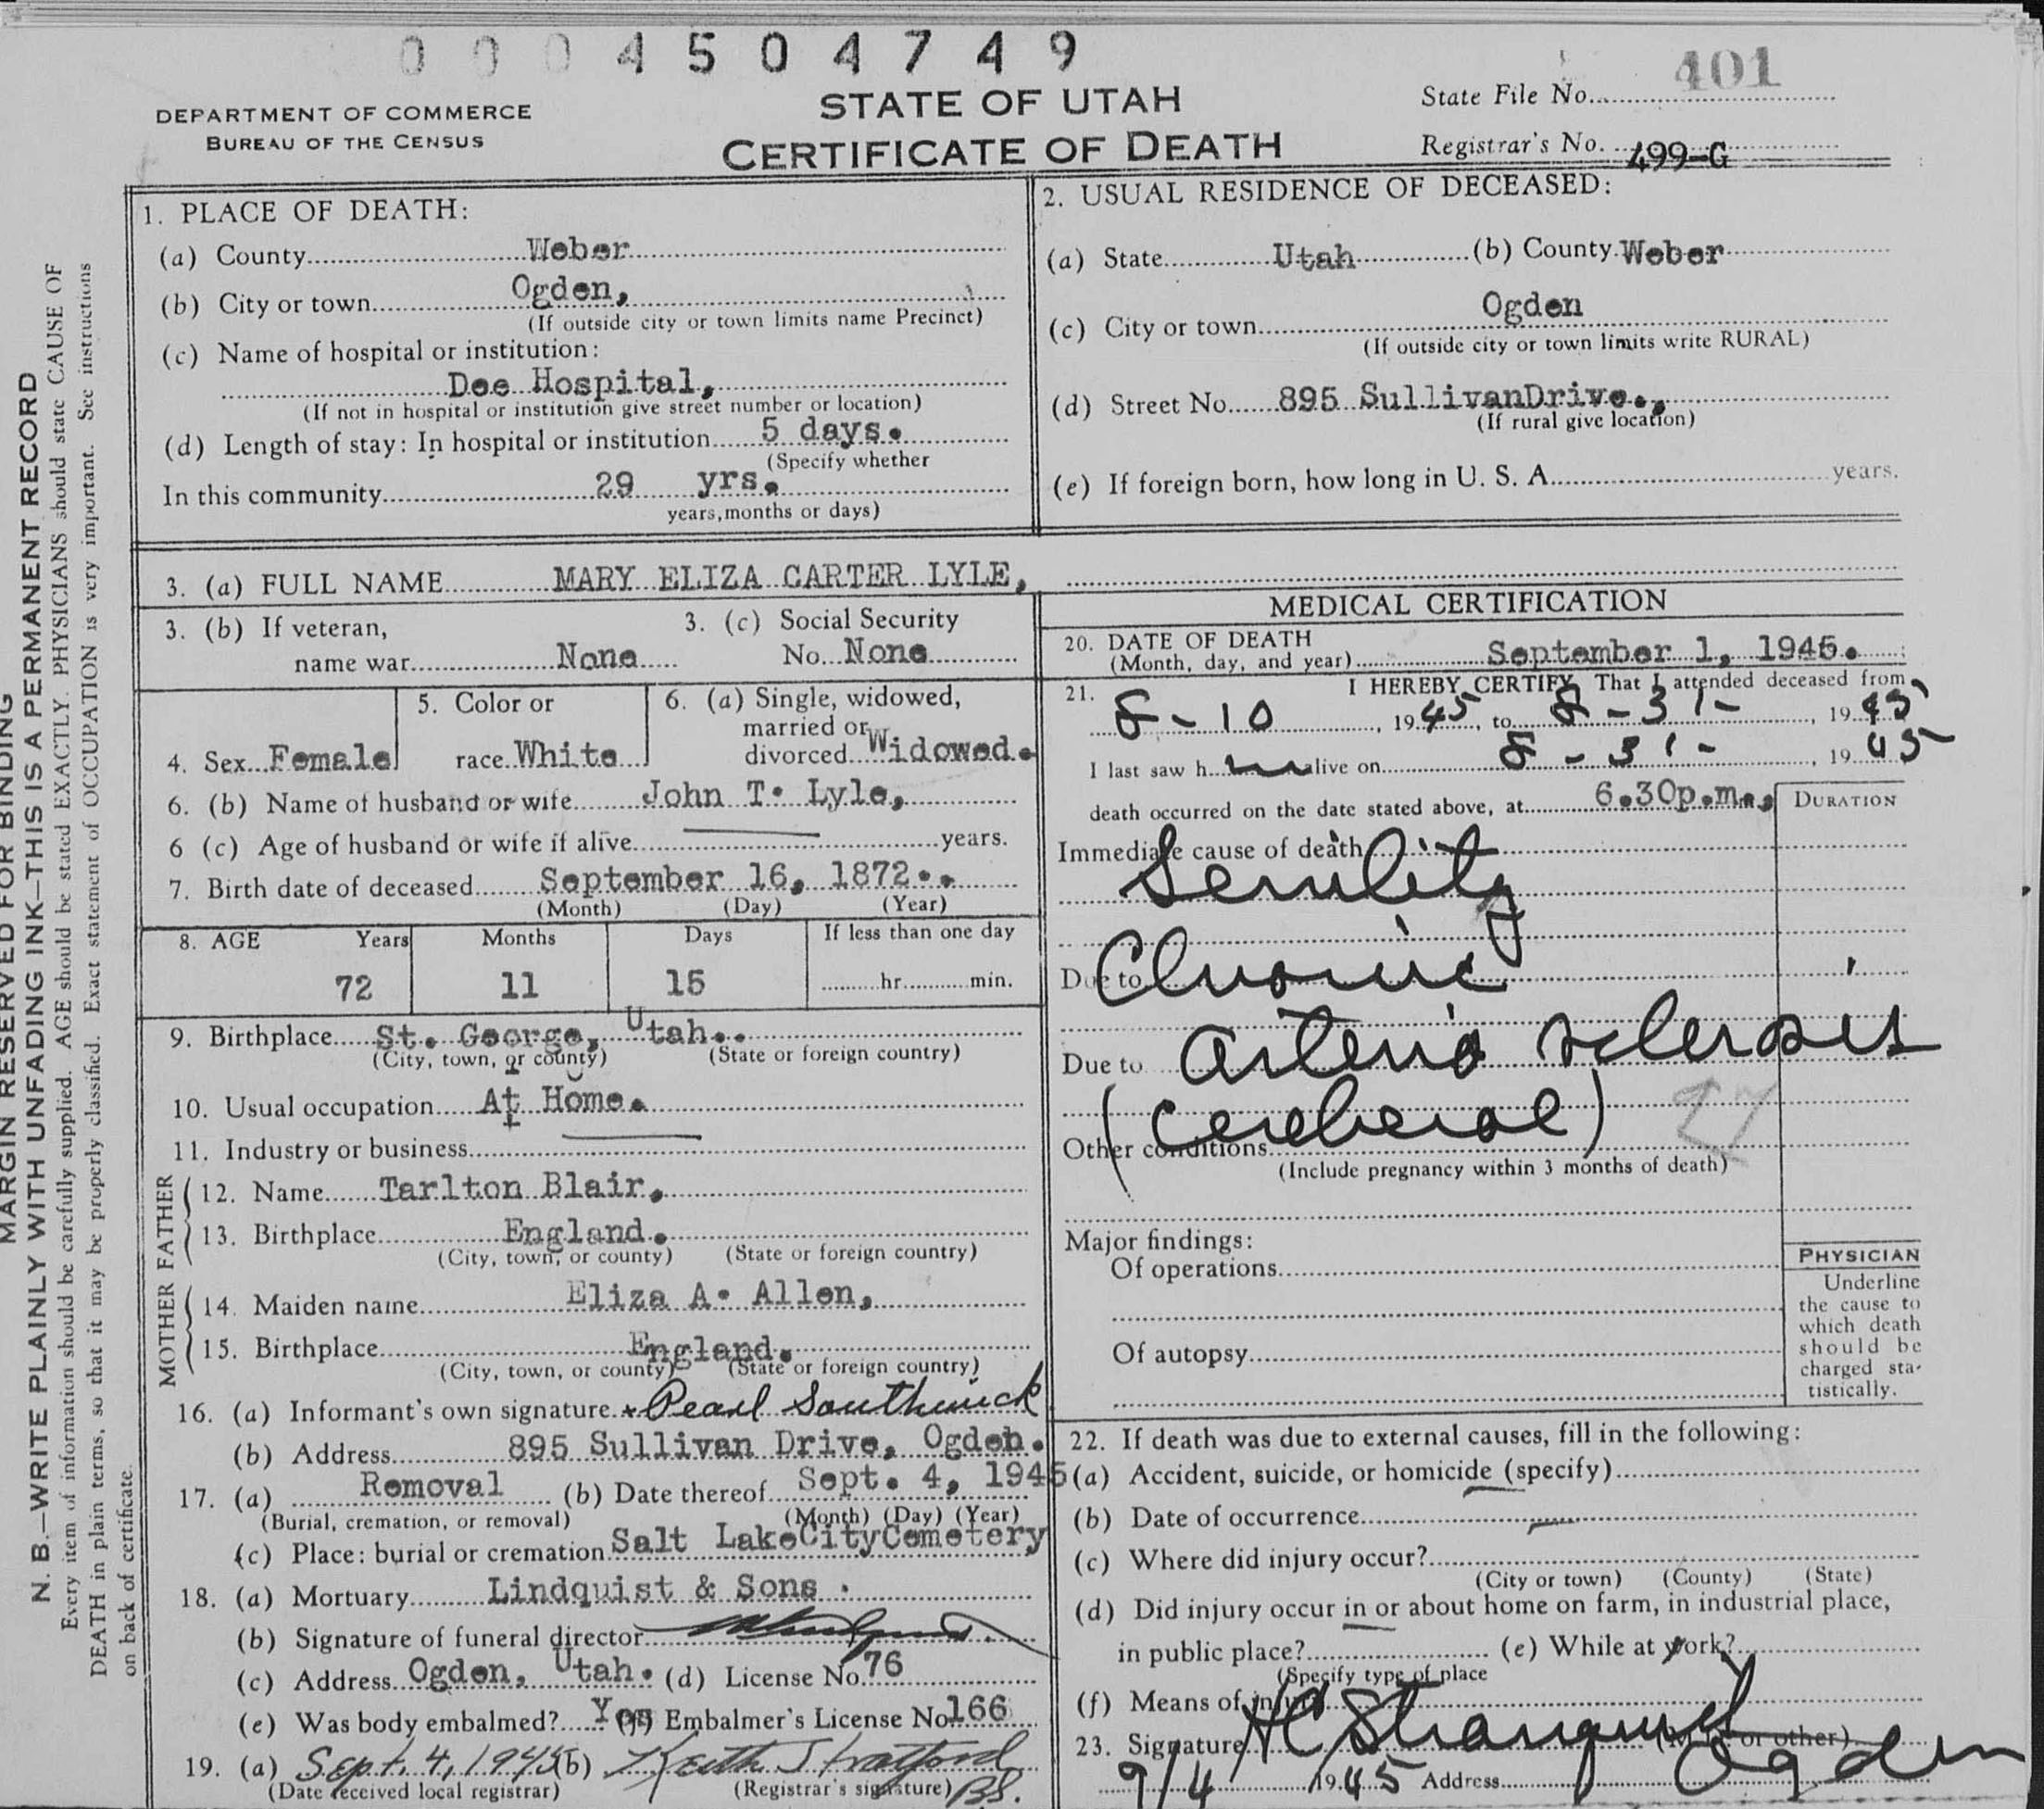 0004504749
401
DEPARTMENT OF COMMERCE
BUREAU OF THE CENSUS
STATE OF UTAH
CERTIFICATE OF DEATH
State File No.
Registrar's No. 499-G
MARGIN RESERVED FOR BINDING
N. B.—WRITE PLAINLY WITH UNFADING INK—THIS IS A PERMANENT RECORD
Every item of information should be carefully supplied. AGE should be stated EXACTLY. PHYSICIANS should state CAUSE OF
DEATH in plain terms, so that it may be properly classified. Exact statement of OCCUPATION is very important. See instructions
on back of certificate.
1. PLACE OF DEATH:
(a) County Weber
(b) City or town Ogden,
(If outside city or town limits name Precinct)
(c) Name of hospital or institution:
Dee Hospital,
(If not in hospital or institution give street number or location)
(d) Length of stay: In hospital or institution 5 days.
(Specify whether
In this community 29 yrs.
years, months or days)
2. USUAL RESIDENCE OF DECEASED:
(a) State Utah (b) County Weber
(c) City or town Ogden
(If outside city or town limits write RURAL)
(d) Street No. 895 SullivanDrive.,
(If rural give location)
(e) If foreign born, how long in U. S. A. years.
3. (a) FULL NAME MARY ELIZA CARTER LYLE,
3. (b) If veteran,
name war None
3. (c) Social Security
No. None
4. Sex Female
5. Color or
race White
6. (a) Single, widowed,
married or
divorced Widowed.
6. (b) Name of husband or wife John T. Lyle,
6 (c) Age of husband or wife if alive years.
7. Birth date of deceased September 16, 1872..
(Month) (Day) (Year)
8. AGE Years Months Days If less than one day
72 11 15 hr. min.
9. Birthplace St. George, Utah..
(City, town, or county) (State or foreign country)
10. Usual occupation At Home.
11. Industry or business
FATHER
12. Name Tarlton Blair.
13. Birthplace England.
(City, town, or county) (State or foreign country)
MOTHER
14. Maiden name Eliza A. Allen,
15. Birthplace England.
(City, town, or county) (State or foreign country)
16. (a) Informant's own signature Pearl Southwick
(b) Address 895 Sullivan Drive, Ogden.
17. (a) Removal (b) Date thereof Sept. 4, 1945
(Burial, cremation, or removal) (Month) (Day) (Year)
(c) Place: burial or cremation Salt LakeCityCemetery
18. (a) Mortuary Lindquist & Sons.
(b) Signature of funeral director
(c) Address Ogden, Utah. (d) License No. 76
(e) Was body embalmed? Yes (f) Embalmer's License No. 166
19. (a) Sept. 4, 1945 (b) Keith Stratford
(Date received local registrar) (Registrar's signature) BS.
MEDICAL CERTIFICATION
20. DATE OF DEATH
(Month, day, and year) September 1, 1945.
21. I HEREBY CERTIFY, That I attended deceased from
8-10, 1945, to 8-31-, 1945
I last saw h alive on 8-31-, 1945
death occurred on the date stated above, at 6.30p.m.,
DURATION
Immediate cause of death
Senility
Due to Chronic
Due to arterio sclerosis
(cerebral)
Other conditions
(Include pregnancy within 3 months of death)
Major findings:
Of operations
Of autopsy
PHYSICIAN
Underline
the cause to
which death
should be
charged sta-
tistically.
22. If death was due to external causes, fill in the following:
(a) Accident, suicide, or homicide (specify)
(b) Date of occurrence
(c) Where did injury occur?
(City or town) (County) (State)
(d) Did injury occur in or about home on farm, in industrial place,
in public place? (e) While at work?
(Specify type of place
(f) Means of injury
23. Signature (M.D. or other)
9/4 1945 Address Ogden